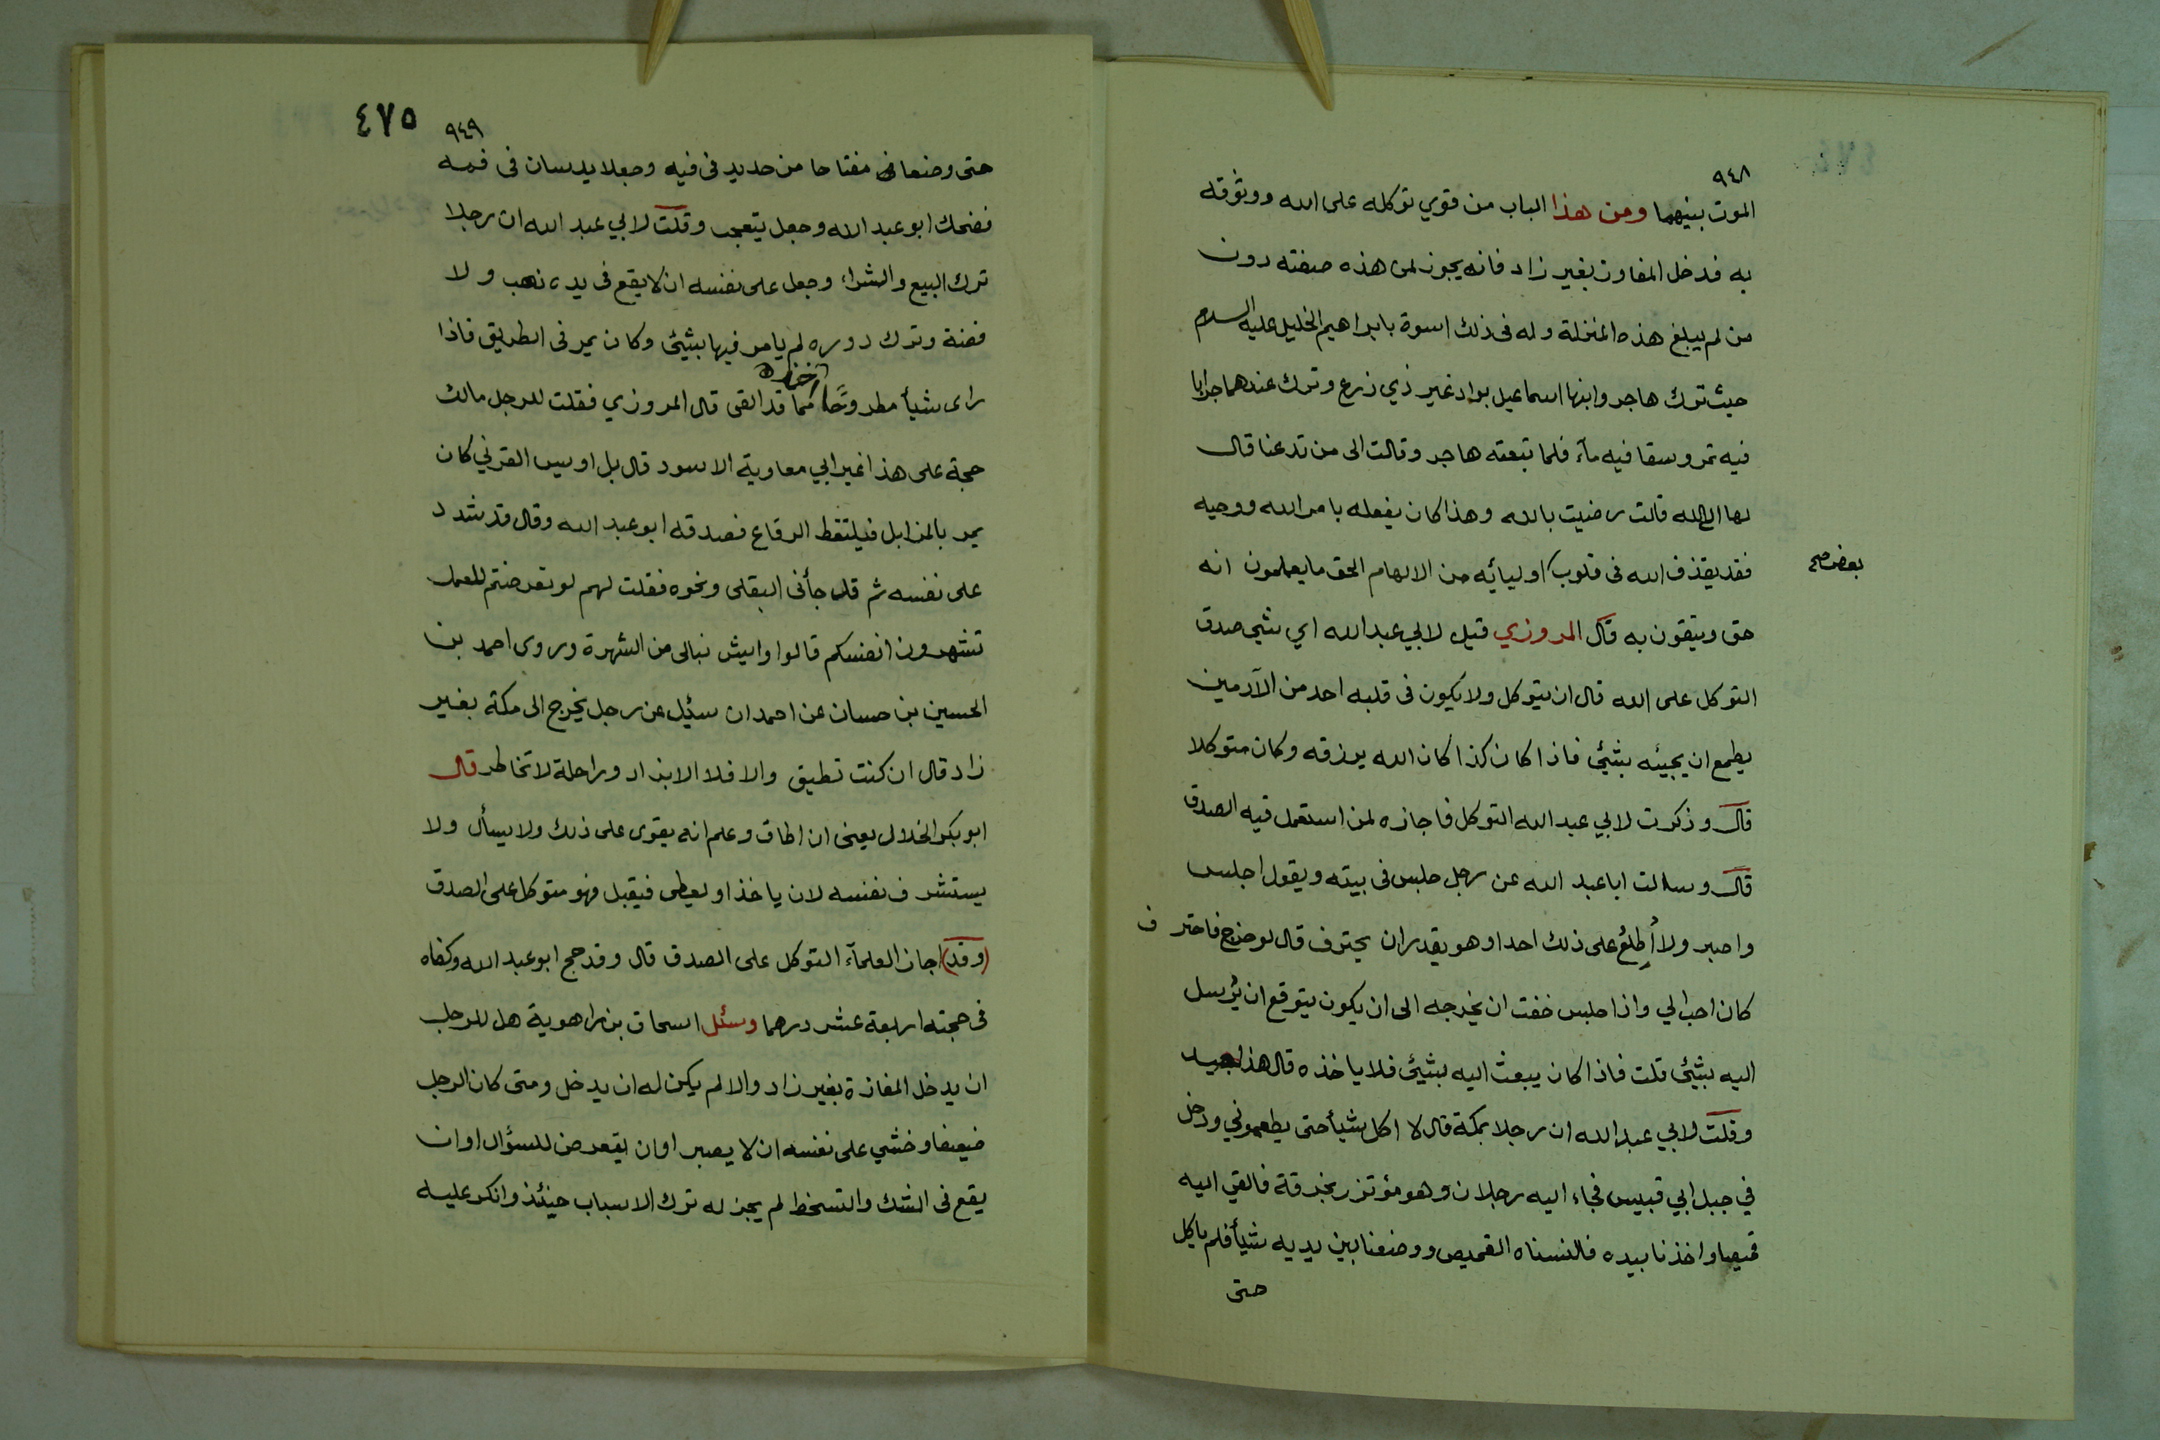 ٩٤٨
الموت بينهما ومن هذا الباب من قوي توكله على الله ووثوقه
به فدخل المفاوز بغير زاد فانه يجوز لمن هذه صفته دون
من لم يبلغ هذه المنزلة وله فى ذلك اسوة بابراهيم الخليل عليه السلام
حيث ترك هاجر وابنها اسماعيل بواد غير ذي زرع وترك عندهما جرابا
فيه تمر وسقا فيه مآء فلما تبعته هاجر وقالت الى من تدعنا قال
لها الى الله قالت رضيت بالله وهذا كان يفعله بامر الله ووحيه
فقد يقذف الله فى قلوب اوليائه من الالهام الحق ما يعلمون انه
بعض صح
حق ويثقون به قال المروزي قيل لابي عبد الله اي شي صدق
التوكل على الله قال ان يتوكل ولا يكون فى قلبه احد من الآدمين
يطمع ان يجيئه بشيئ فاذا كان كذا كان الله يرزقه وكان متوكلا
قال وذكرت لابي عبد الله التوكل فاجازه لمن استعمل فيه الصدق
قال وسالت ابا عبد الله عن رجل جلس فى بيته ويقول اجلس
واصبر ولا أطلع على ذلك احدا وهو يقدر ان يحترف قال لو خرج فاحترف
كان احب الي واذا جلس خفت ان يخرجه الى ان يكون يتوقع ان يرسل
اليه بشيئ قلت فاذا كان يبعث اليه بشيئ فلا ياخذه قال هذا جيد
وقلت لابي عبد الله ان رجلا بمكة قال لا اكل شيأ حتى يطعموني ودخل
في جبل ابي قبيس فجاء اليه رجلان وهو مؤتزر بخرقة فالقي اليه
قميصا واخذنا بيده فالبسناه القميص ووضعنا بين يديه شيأ فلم ياكل
حتى
٤٧٥
٩٤٩
حتى وضعا فى مفتاحا من حديد فى فيه وجعلا يدسان فى فمه
فضحك ابو عبد الله وجعل يتعجب وقلت لابي عبد الله ان رجلا
ترك البيع والشراء وجعل على نفسه ان لا يقع فى يده ذهب ولا
فضة وترك دوره لم يامر فيها بشيئ وكان يمر فى الطريق فاذا
راى شيأ مطروحًا اخذه مما قد القى قال المروزي فقلت للرجل مالك
حجة على هذا غير ابي معاوية الاسود قال بل اويس القرني كان
يمر بالمزابل فيلتقط الرقاع فصدقه ابو عبد الله وقال قد شدد
على نفسه ثم قال جأنى البقلى ونحوه فقلت لهم لو تعرضتم للعمل
تشهرون انفسكم قالوا وايش نبالى من الشهرة وروى احمد بن
الحسين بن حسان عن احمد ان سئيل عن رجل يخرج الى مكة بغير
زاد قال ان كنت تطيق والا فلا الا بزاد وراحلة لا تخاطر قال
ابو بكر الخلال يعنى ان اطاق وعلم انه يقوى على ذلك ولا يسأل ولا
يستشرف نفسه لان ياخذ او يعطى فيقبل فهو متوكل على الصدق
(وقد) اجاز العلمآء التوكل على الصدق قال وقد حج ابو عبد الله وكفاه
فى حجته اربعة عشر درهما وسئل اسحاق بن راهوية هل للرجل
ان يدخل المفازة بغير زاد والا لم يكن له ان يدخل ومتى كان الرجل
ضيعفا وخشي على نفسه ان لا يصبر او ان يتعرض للسؤال او ان
يقع فى الشك والتسخط لم يجز له ترك الاسباب حينئذ وانكر عليه